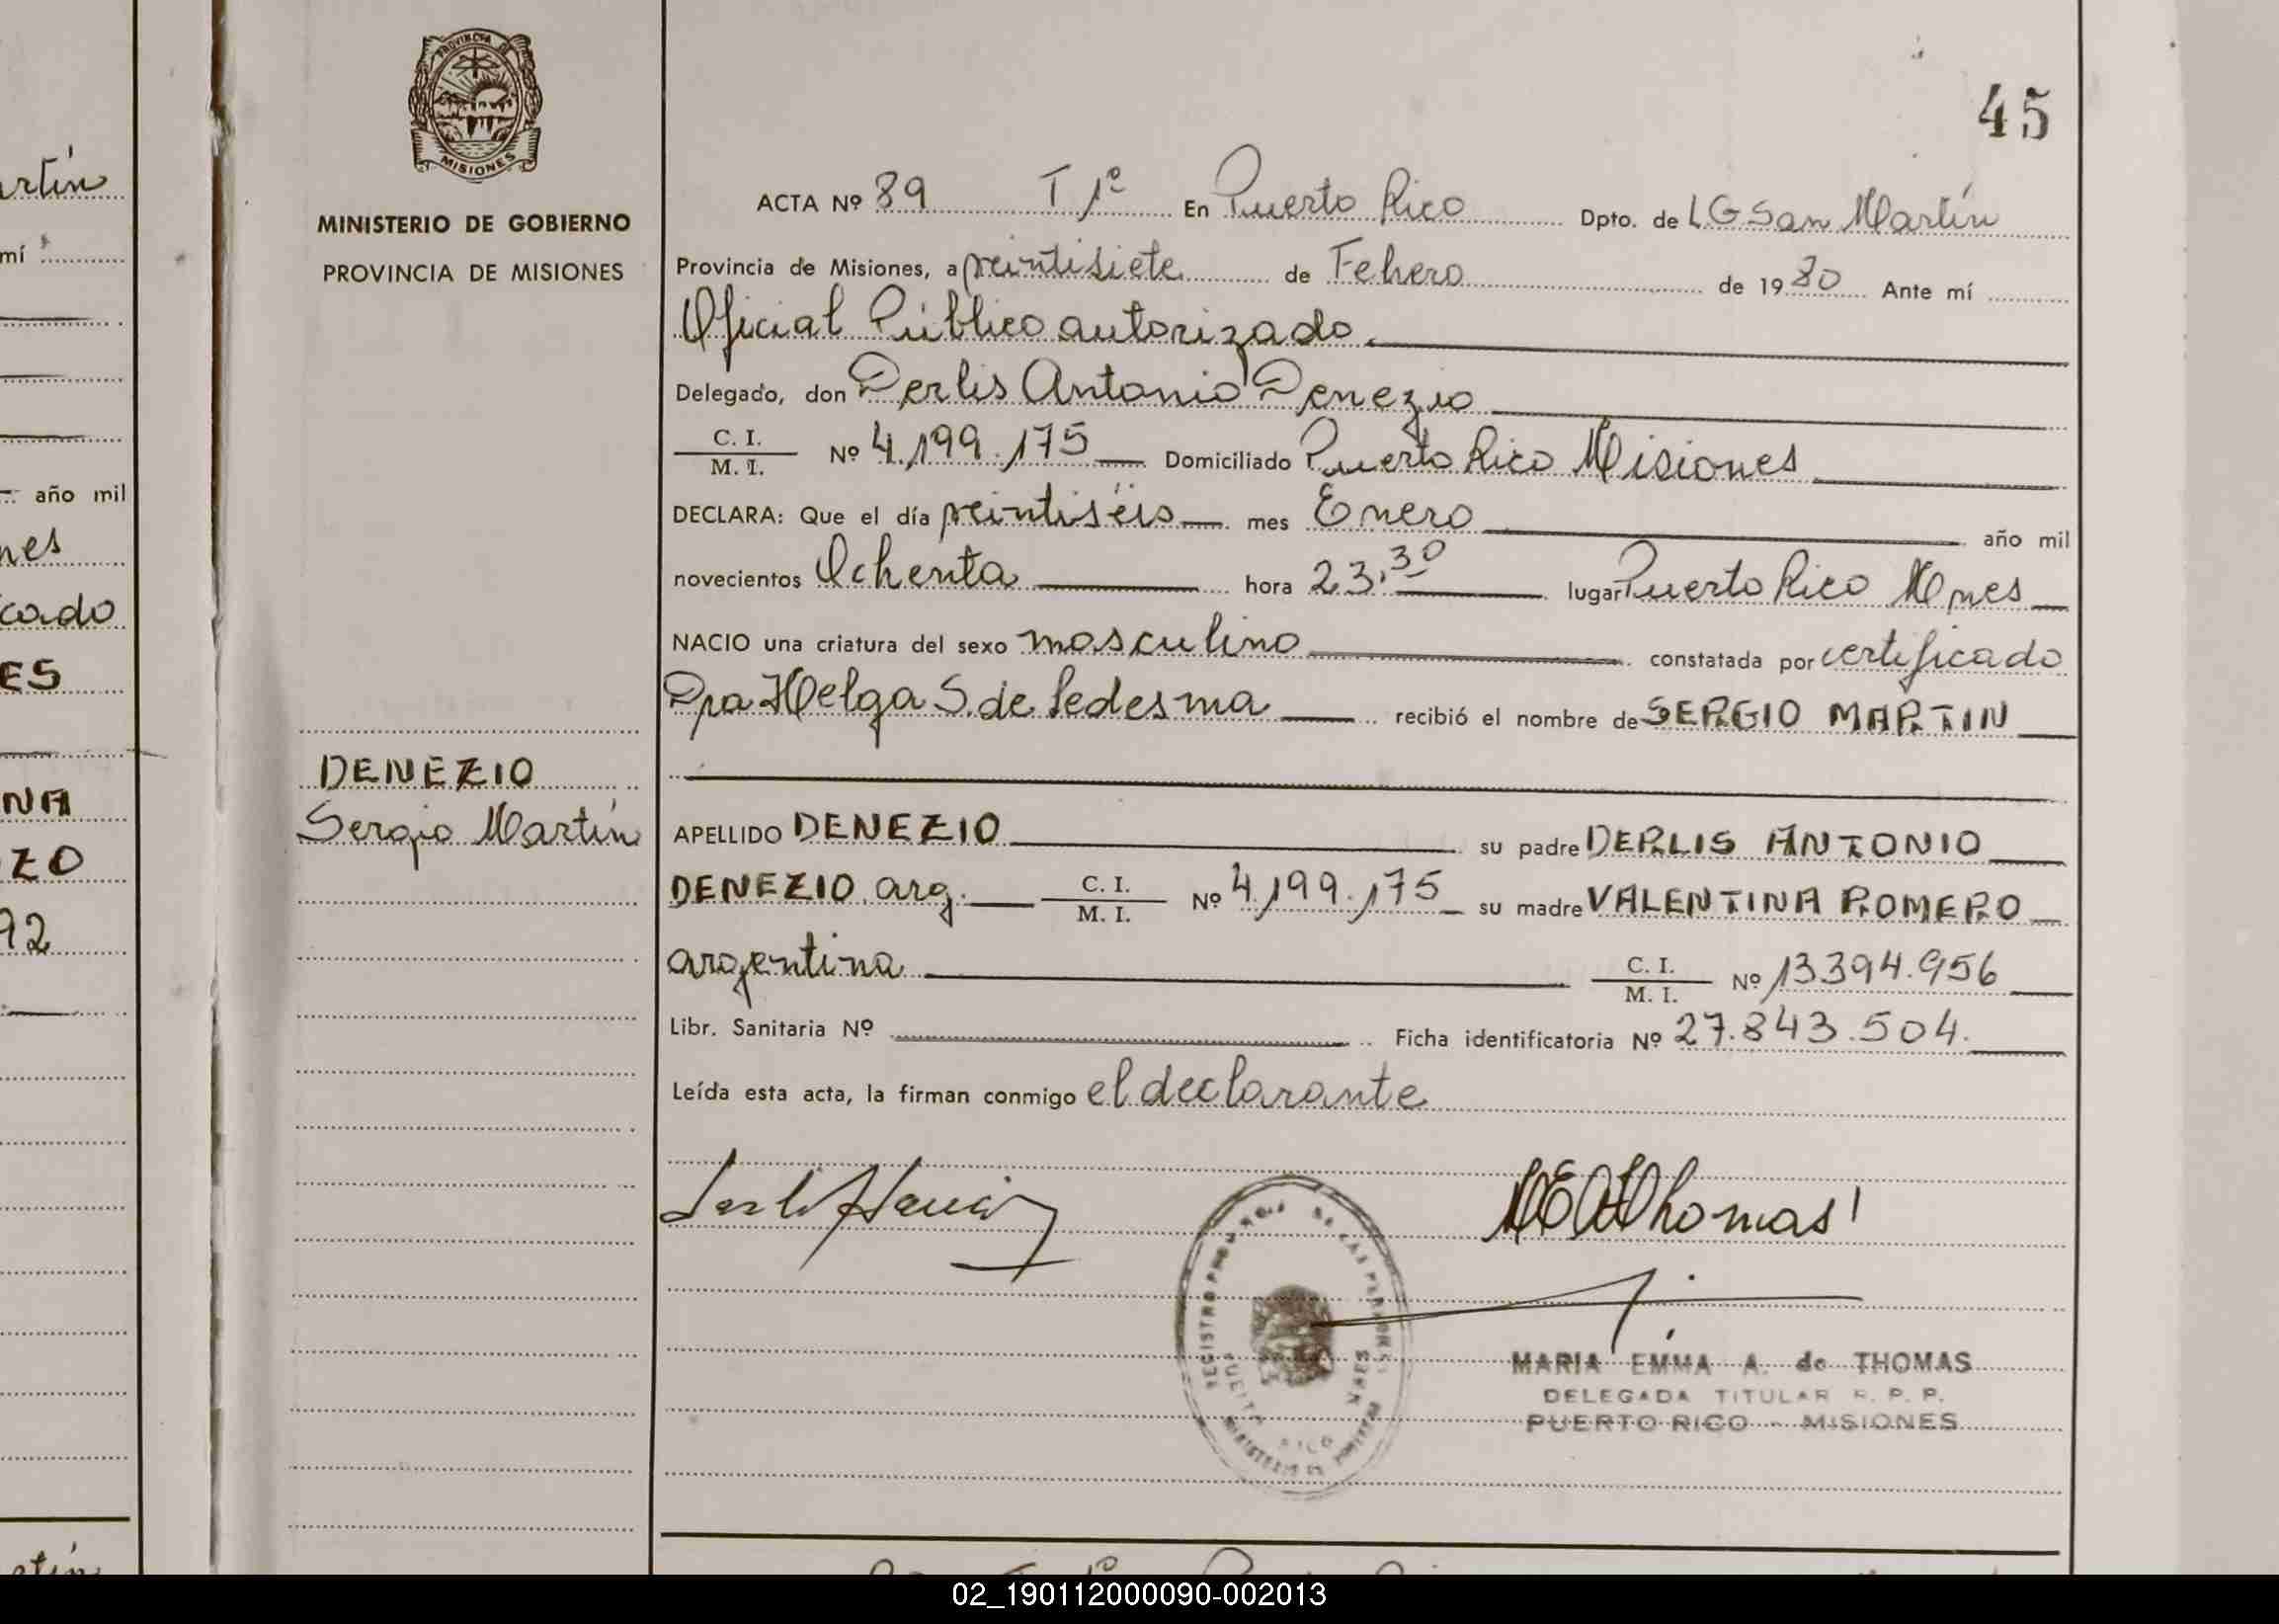 PROVINCIA DE
MISIONES
MINISTERIO DE GOBIERNO
PROVINCIA DE MISIONES
DENEZIO
Sergio Martín
45
ACTA Nº 89 T 1º En Puerto Rico Dpto. de L G San Martín
Provincia de Misiones, a veintisiete de Febrero de 1980 Ante mí
Oficial Público autorizado.
Delegado, don Derlis Antonio Denezio
C. I.
M. I. Nº 4.199.175 Domiciliado Puerto Rico Misiones
DECLARA: Que el día veintiséis mes Enero año mil
novecientos Ochenta hora 23,30 lugar Puerto Rico Mnes
NACIO una criatura del sexo masculino constatada por certificado
Dra Helga S. de Ledesma recibió el nombre de SERGIO MARTIN
APELLIDO DENEZIO su padre DERLIS ANTONIO
DENEZIO, arg. C. I.
M. I. Nº 4.199.175 su madre VALENTINA ROMERO
argentina C. I.
M. I. Nº 13394.956
Libr. Sanitaria Nº Ficha identificatoria Nº 27.843.504.
Leída esta acta, la firman conmigo el declarante
MEAThomas
MARIA EMMA A. de THOMAS
DELEGADA TITULAR R. P. P.
PUERTO RICO - MISIONES
rtín
mí
año mil
nes
cado
ES
NA
ZO
92
02_190112000090-002013